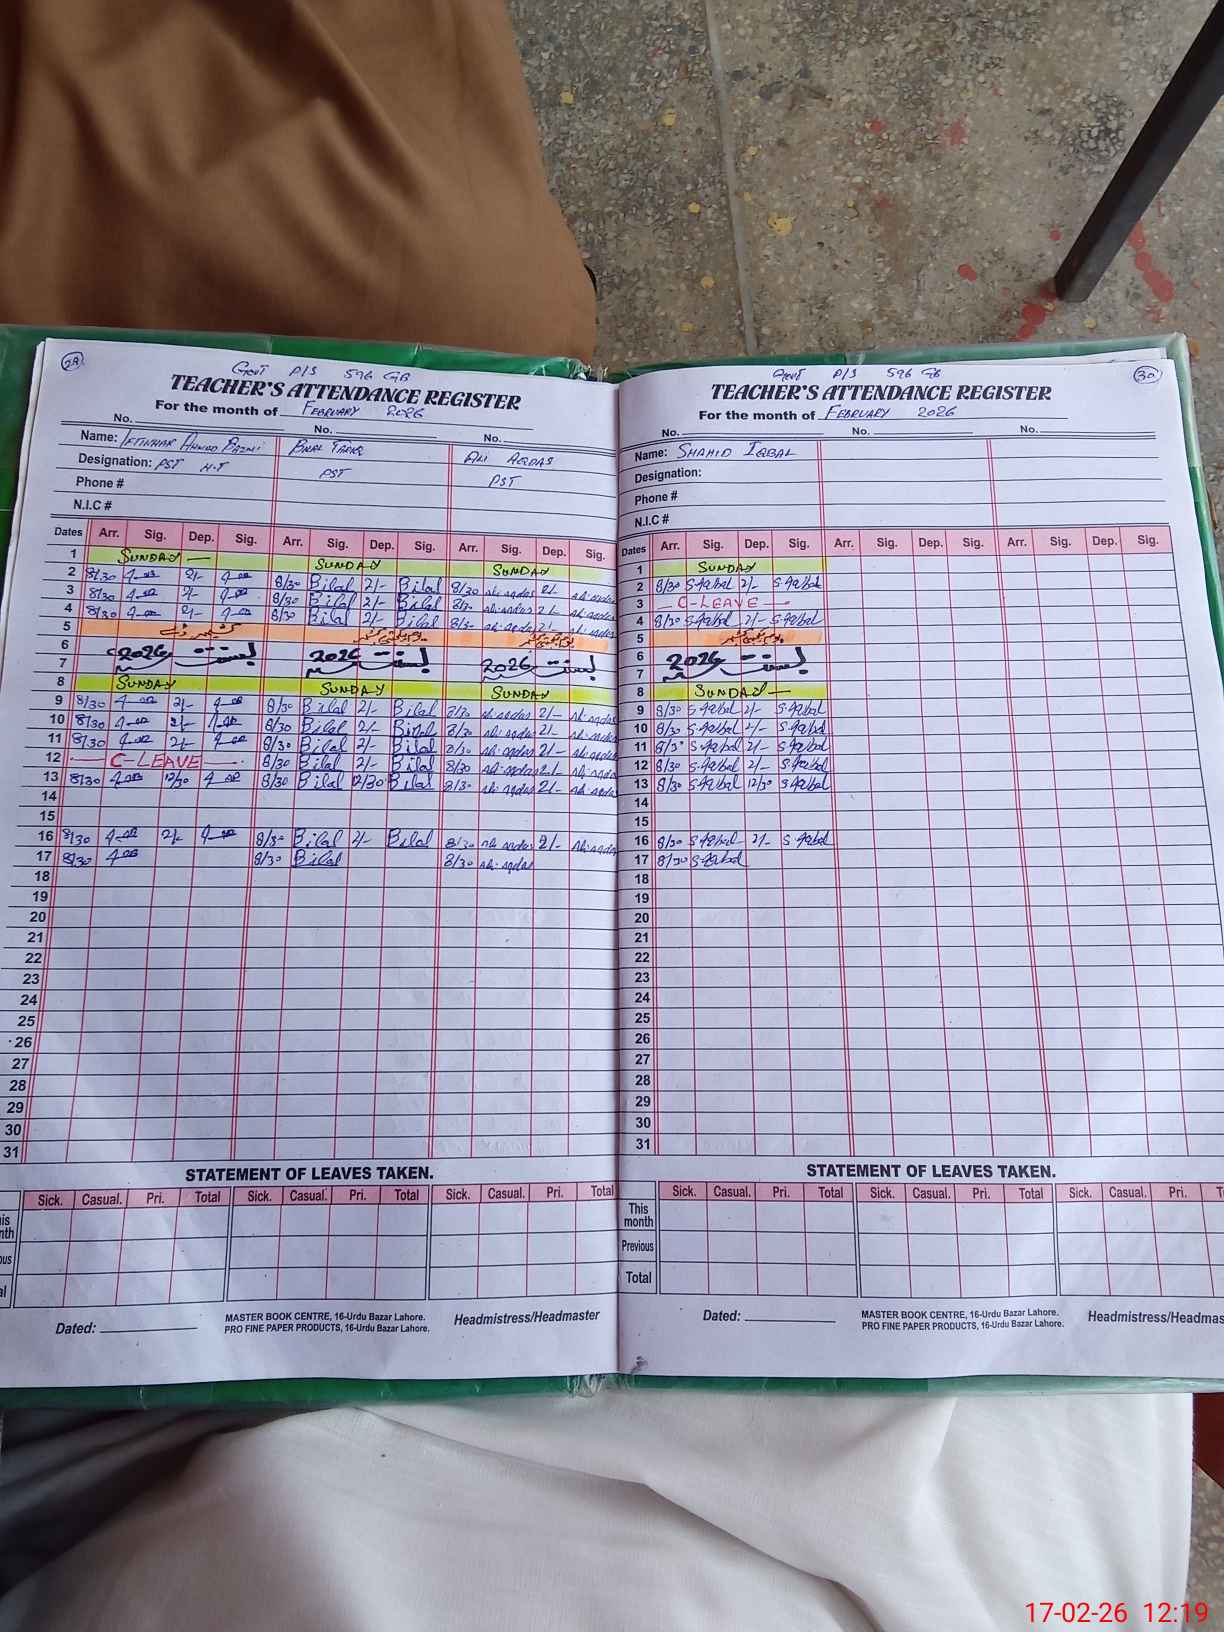 29
Govt P/S 596 GB
TEACHER'S ATTENDANCE REGISTER
For the month of February 2026
No. No. No.
Name: Iftikhar Ahmad Bilal Tariq Ali Aqdas
Designation: PST H.T PST PST
Phone #
N.I.C #
Dates Arr. Sig. Dep. Sig. Arr. Sig. Dep. Sig. Arr. Sig. Dep. Sig.
1 SUNDAY SUNDAY SUNDAY
2 8/30 2/- 8/30 Bilal 2/- Bilal 8/30 Ali aqdas 2/- Ali aqdas
3 8/30 2/- 8/30 Bilal 2/- Bilal 8/30 Ali aqdas 2/- Ali aqdas
4 8/30 2/- 8/30 Bilal 2/- Bilal 8/30 Ali aqdas 2/- Ali aqdas
5 یوم یکجہتی کشمیر یوم یکجہتی کشمیر
6 بسنت 2026 بسنت 2026 بسنت 2026
7
8 SUNDAY SUNDAY SUNDAY
9 8/30 2/- 8/30 Bilal 2/- Bilal 8/30 Ali aqdas 2/- Ali aqdas
10 8/30 2/- 8/30 Bilal 2/- Bilal 8/30 Ali aqdas 2/- Ali aqdas
11 8/30 2/- 8/30 Bilal 2/- Bilal 8/30 Ali aqdas 2/- Ali aqdas
12 C-LEAVE 8/30 Bilal 2/- Bilal 8/30 Ali aqdas 2/- Ali aqdas
13 8/30 12/30 8/30 Bilal 12/30 Bilal 8/30 Ali aqdas 2/- Ali aqdas
14
15
16 8/30 2/- 8/30 Bilal 2/- Bilal 8/30 Ali aqdas 2/- Ali aqdas
17 8/30 8/30 Bilal 8/30 Ali aqdas
18
19
20
21
22
23
24
25
26
27
28
29
30
31
STATEMENT OF LEAVES TAKEN.
Sick. Casual. Pri. Total Sick. Casual. Pri. Total Sick. Casual. Pri. Total
Dated:
MASTER BOOK CENTRE, 16-Urdu Bazar Lahore.
PRO FINE PAPER PRODUCTS, 16-Urdu Bazar Lahore.
Headmistress/Headmaster
30
Govt P/S 596 GB
TEACHER'S ATTENDANCE REGISTER
For the month of February 2026
No. No. No.
Name: Shahid Iqbal
Designation:
Phone #
N.I.C #
Dates Arr. Sig. Dep. Sig. Arr. Sig. Dep. Sig. Arr. Sig. Dep. Sig.
1 SUNDAY
2 8/30 S.Iqbal 2/- S.Iqbal
3 C-LEAVE
4 8/30 S.Iqbal 2/- S.Iqbal
5 یوم یکجہتی کشمیر
6 بسنت 2026
7
8 SUNDAY
9 8/30 S.Iqbal 2/- S.Iqbal
10 8/30 S.Iqbal 2/- S.Iqbal
11 8/30 S.Iqbal 2/- S.Iqbal
12 8/30 S.Iqbal 2/- S.Iqbal
13 8/30 S.Iqbal 12/30 S.Iqbal
14
15
16 8/30 S.Iqbal 2/- S.Iqbal
17 8/30 S.Iqbal
18
19
20
21
22
23
24
25
26
27
28
29
30
31
STATEMENT OF LEAVES TAKEN.
Sick. Casual. Pri. Total Sick. Casual. Pri. Total Sick. Casual. Pri.
This month
Previous
Total
Dated:
MASTER BOOK CENTRE, 16-Urdu Bazar Lahore.
PRO FINE PAPER PRODUCTS, 16-Urdu Bazar Lahore.
Headmistress/Headmas
17-02-26 12:19